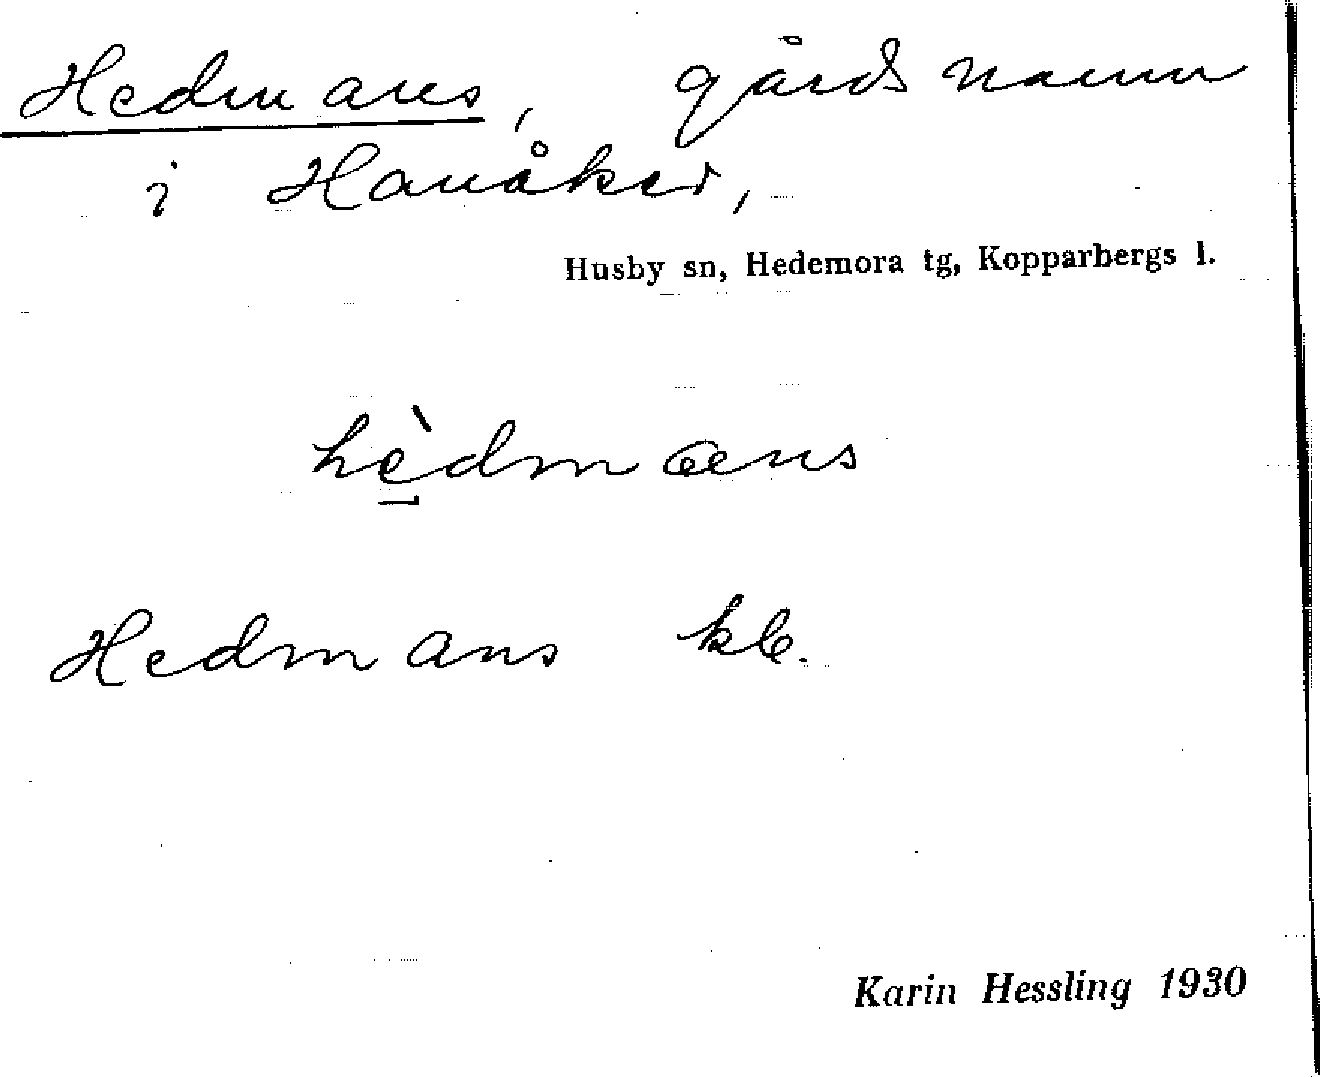 Hedmans, gårdsnamn
i Hanåker,
Husby sn, Hedemora tg, Kopparbergs l.
hèdmans
Hedmans klb.
Karin Hessling 1930